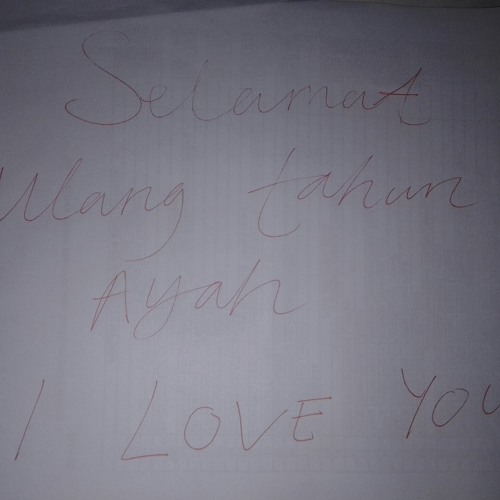 Selamat
Ulang tahun
Ayah
I LOVE YOU